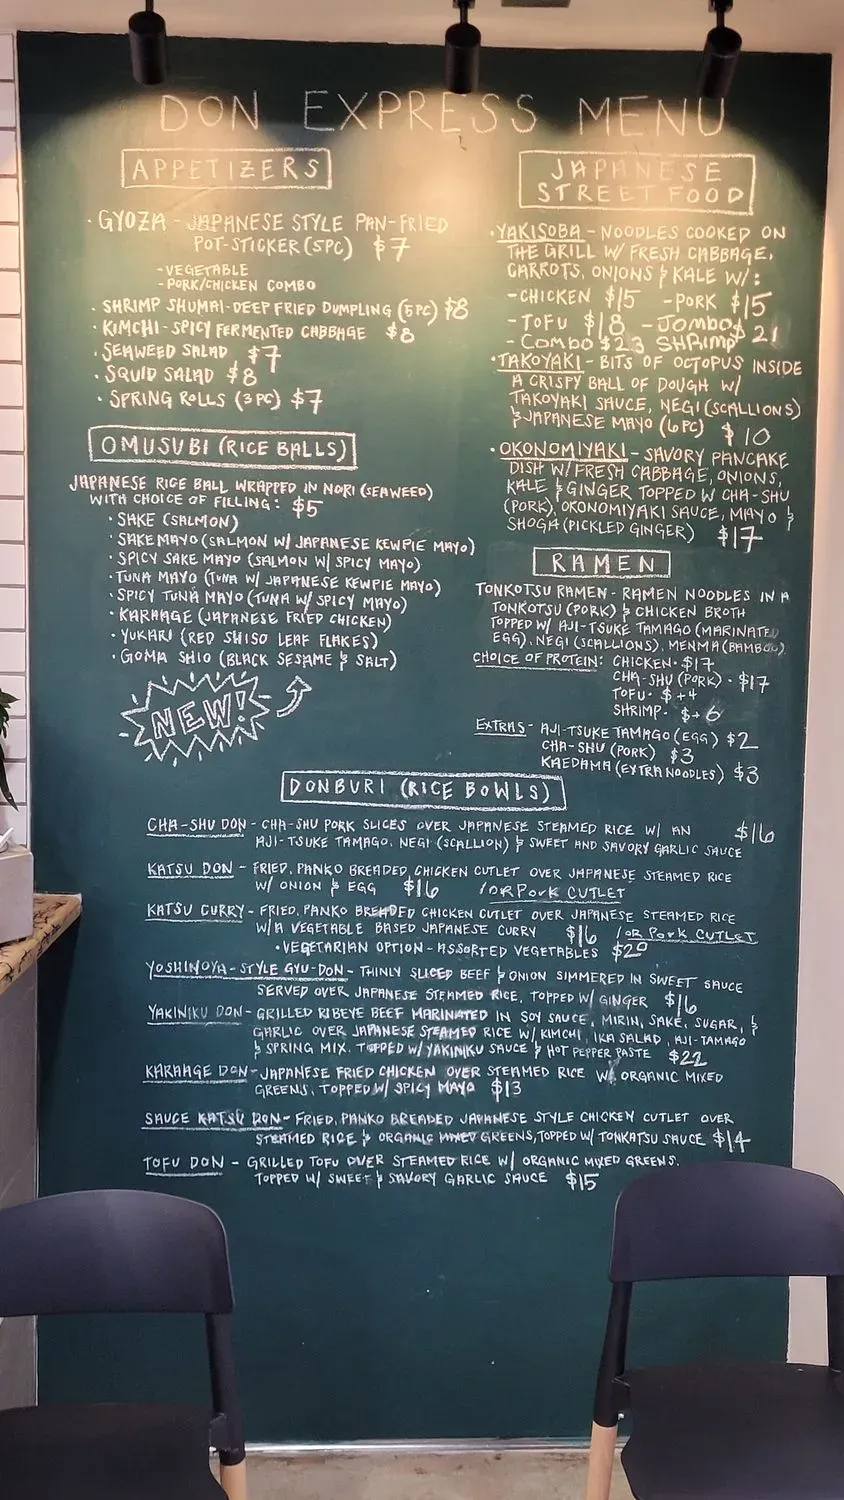 DON EXPRESS MENU
APPETIZERS
· GYOZA - JAPANESE STYLE PAN-FRIED
POT-STICKER (5PC) $7
- VEGETABLE
- PORK/CHICKEN COMBO
· SHRIMP SHUMAI - DEEP FRIED DUMPLING (5PC) $8
· KIMCHI - SPICY FERMENTED CABBAGE $8
· SEAWEED SALAD $7
· SQUID SALAD $8
· SPRING ROLLS (3PC) $7
OMUSUBI (RICE BALLS)
JAPANESE RICE BALL WRAPPED IN NORI (SEAWEED)
WITH CHOICE OF FILLING: $5
· SAKE (SALMON)
· SAKE MAYO (SALMON W/ JAPANESE KEWPIE MAYO)
· SPICY SAKE MAYO (SALMON W/ SPICY MAYO)
· TUNA MAYO (TUNA W/ JAPANESE KEWPIE MAYO)
· SPICY TUNA MAYO (TUNA W/ SPICY MAYO)
· KARAAGE (JAPANESE FRIED CHICKEN)
· YUKARI (RED SHISO LEAF FLAKES)
· GOMA SHIO (BLACK SESAME & SALT)
NEW!
JAPANESE
STREET FOOD
· YAKISOBA - NOODLES COOKED ON
THE GRILL W/ FRESH CABBAGE,
CARROTS, ONIONS & KALE W/:
- CHICKEN $15 - PORK $15
- TOFU $18 - Jombo $21
- Combo $23 SHRimp
· TAKOYAKI - BITS OF OCTOPUS INSIDE
A CRISPY BALL OF DOUGH W/
TAKOYAKI SAUCE, NEGI (SCALLIONS)
& JAPANESE MAYO (6PC) $10
· OKONOMIYAKI - SAVORY PANCAKE
DISH W/ FRESH CABBAGE, ONIONS,
KALE & GINGER TOPPED W CHA-SHU
(PORK), OKONOMIYAKI SAUCE, MAYO &
SHOGA (PICKLED GINGER) $17
RAMEN
TONKOTSU RAMEN - RAMEN NOODLES IN A
TONKOTSU (PORK) & CHICKEN BROTH
TOPPED W/ AJI-TSUKE TAMAGO (MARINATED
EGG), NEGI (SCALLIONS), MENMA (BAMBOO)
CHOICE OF PROTEIN: CHICKEN · $17
CHA-SHU (PORK) · $17
TOFU · $+4
SHRIMP · $+6
EXTRAS - AJI-TSUKE TAMAGO (EGG) $2
CHA-SHU (PORK) $3
KAEDAMA (EXTRA NOODLES) $3
DONBURI (RICE BOWLS)
CHA-SHU DON - CHA-SHU PORK SLICES OVER JAPANESE STEAMED RICE W/ AN $16
AJI-TSUKE TAMAGO, NEGI (SCALLION) & SWEET AND SAVORY GARLIC SAUCE
KATSU DON - FRIED, PANKO BREADED, CHICKEN CUTLET OVER JAPANESE STEAMED RICE
W/ ONION & EGG $16 / OR PORK CUTLET
KATSU CURRY - FRIED, PANKO BREADED CHICKEN CUTLET OVER JAPANESE STEAMED RICE
W/ A VEGETABLE BASED JAPANESE CURRY $16 / OR PORK CUTLET
· VEGETARIAN OPTION - ASSORTED VEGETABLES $20
YOSHINOYA-STYLE GYU-DON - THINLY SLICED BEEF & ONION SIMMERED IN SWEET SAUCE
SERVED OVER JAPANESE STEAMED RICE, TOPPED W/ GINGER $16
YAKINIKU DON - GRILLED RIBEYE BEEF MARINATED IN SOY SAUCE, MIRIN, SAKE, SUGAR, &
GARLIC OVER JAPANESE STEAMED RICE W/ KIMCHI, IKA SALAD, AJI-TAMAGO
& SPRING MIX. TOPPED W/ YAKINIKU SAUCE & HOT PEPPER PASTE $22
KARAAGE DON - JAPANESE FRIED CHICKEN OVER STEAMED RICE W/ ORGANIC MIXED
GREENS, TOPPED W/ SPICY MAYO $13
SAUCE KATSU DON - FRIED, PANKO BREADED JAPANESE STYLE CHICKEN CUTLET OVER
STEAMED RICE & ORGANIC MIXED GREENS, TOPPED W/ TONKATSU SAUCE $14
TOFU DON - GRILLED TOFU OVER STEAMED RICE W/ ORGANIC MIXED GREENS.
TOPPED W/ SWEET & SAVORY GARLIC SAUCE $15